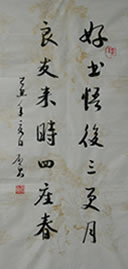 好书悟後三更月
良友来時四座春